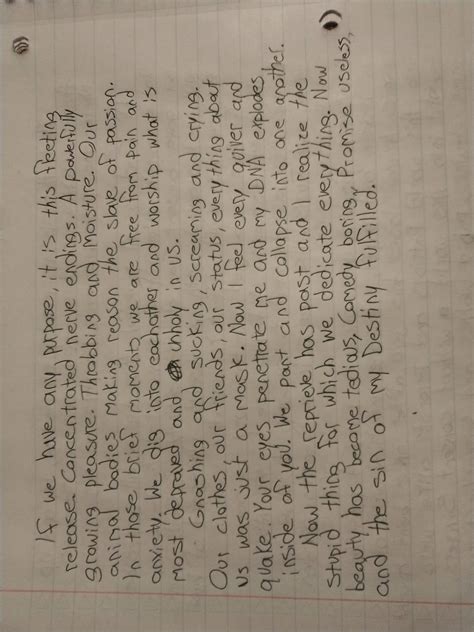 If we have any purpose, it is this fleeting
release. Concentrated nerve endings. A powerfully
growing pleasure. Throbbing and moisture. Our
animal bodies making reason the slave of passion.
In those brief moments we are free from pain and
anxiety. We dig into eachother and worship what is
most depraved and unholy in us.
Gnashing and sucking, screaming and crying.
Our clothes, our friends, our status, everything about
us was just a mask. Now I feel every quiver and
quake. Your eyes penetrate me and my DNA explodes
inside of you. We pant and collapse into one another.
Now the reprieve has past and I realize the
stupid thing for which we dedicate everything. Now
beauty has become tedious, Comedy boring, Promise useless,
and the sin of my Destiny fulfilled.